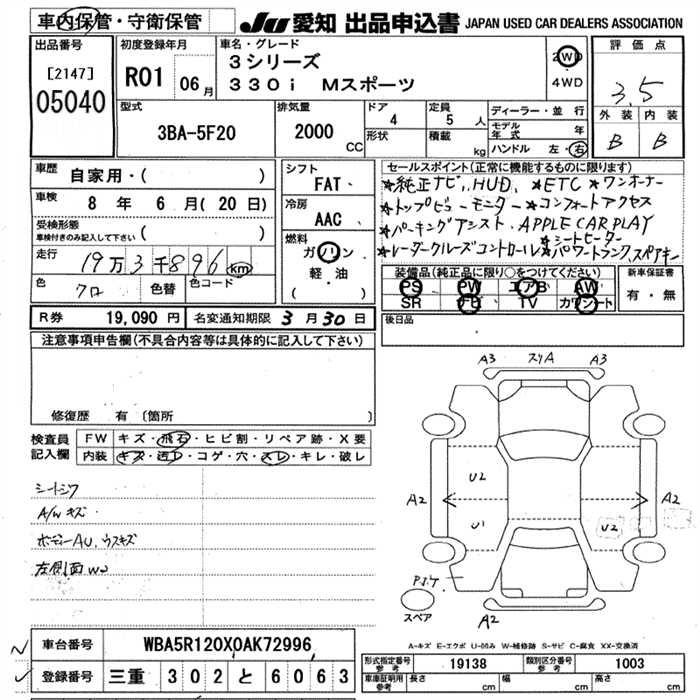 車内保管・守衛保管
JU 愛知 出品申込書 JAPAN USED CAR DEALERS ASSOCIATION
出品番号
[2147]
05040
初度登録年月
R01 06月
車名・グレード
3シリーズ
330i Mスポーツ
2WD
4WD
評価点
3.5
外装 内装
B B
型式
3BA-5F20
排気量
2000 CC
ドア
4
形状
定員
5 人
積載
kg
ディーラー・並行
モデル年式 年
ハンドル 左・右
車歴 自家用・( )
車検 8 年 6 月(20 日)
受検形態
車検付きのみ記入して下さい ( )
走行 19万3千896 km
色 クロ 色替 色コード
シフト
FAT、
冷房
AAC、
燃料
ガソリン・
軽・油
( )
セールスポイント(正常に機能するものに限ります)
★純正ナビ, HUD, ★ETC ★ワンオーナー
★トップビューモニター ★コンフォートアクセス
★パーキングアシスト, APPLE CAR PLAY
★シートヒーター
★レーダークルーズコントロール ★パワートランク, スペアキー
装備品(純正品に限り○をつけてください)
PS PW エアB AW
SR ナビ TV カワシート
新車保証書
有・無
後日品
R券 19,090 円 名変通知期限 3 月 30 日
注意事項申告欄(不具合内容等は具体的に記入して下さい)
修復歴 有 (箇所
検査員記入欄
FW キズ・飛石・ヒビ割・リペア跡・X要
内装 キズ・汚レ・コゲ・穴・スレ・キレ・破レ
シートシワ
A/W キズ
ボデーAU, ウスキズ
左側面W2
A3 スリA A3
A2 U2 U1 U2 A2
スペア
A2
A-キズ E-エクボ U-凹み W-補修跡 S-サビ C-腐食 XX-交換済
車台番号 WBA5R120X0AK72996
登録番号 三重 302 と 6063
形式指定番号 参考 19138 類別区分番号 参考 1003
車庫証明用 参考 長さ cm 幅 cm 高さ cm